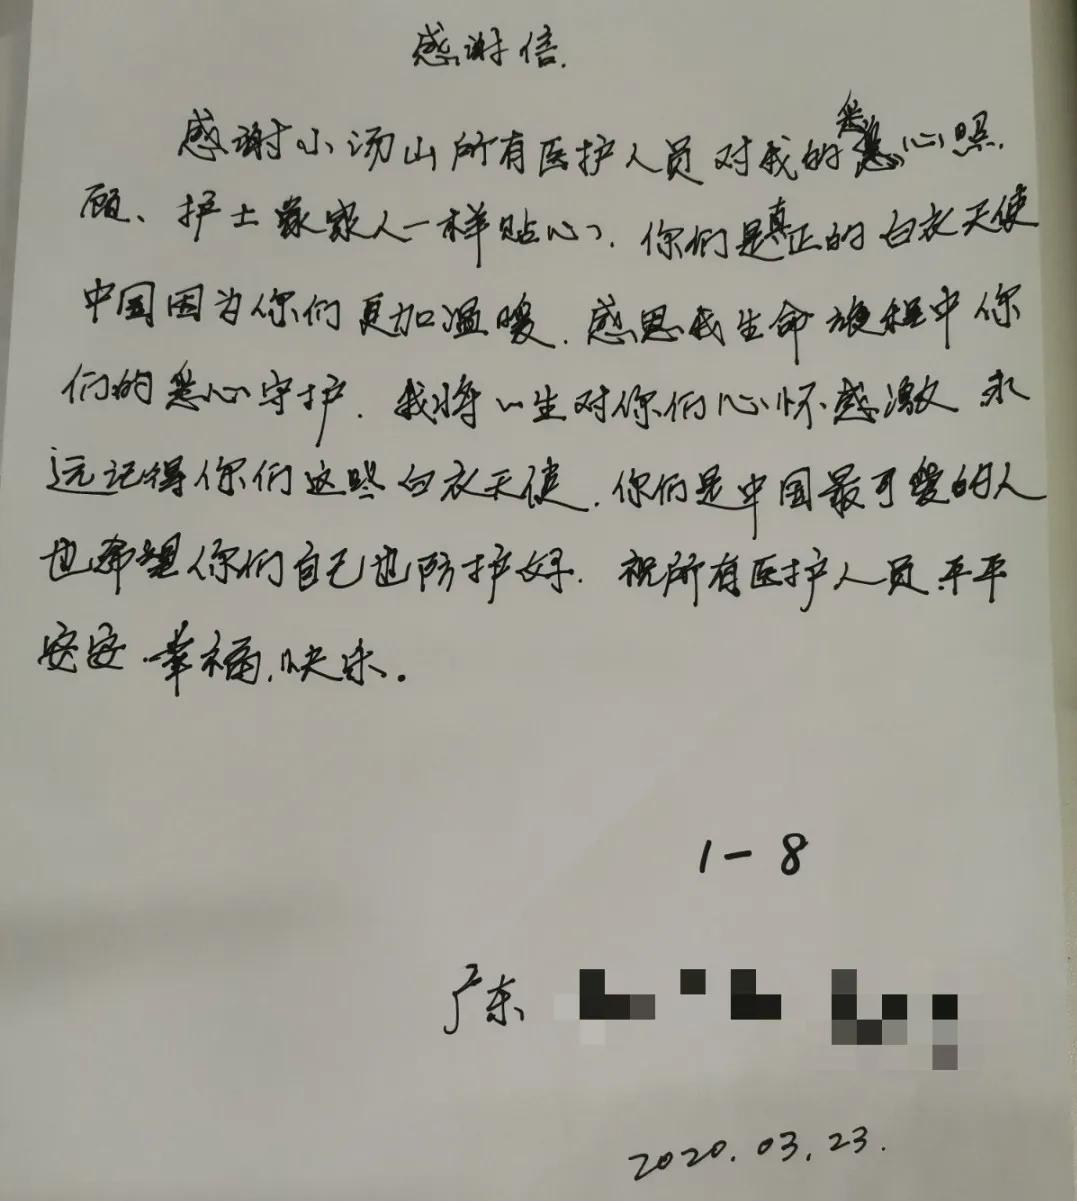 感谢信.
感谢小汤山所有医护人员对我的悉心照
顾、护士象家人一样贴心、你们是真正的白衣天使
中国因为你们更加温暖.感恩我生命旅程中你
们的悉心守护.我将一生对你们心怀感激 永
远记得你们这些白衣天使.你们是中国最可爱的人
也希望你们自己也防护好.祝所有医护人员.平平
安安.幸福.快乐.
1-8
广东
2020.03.23.